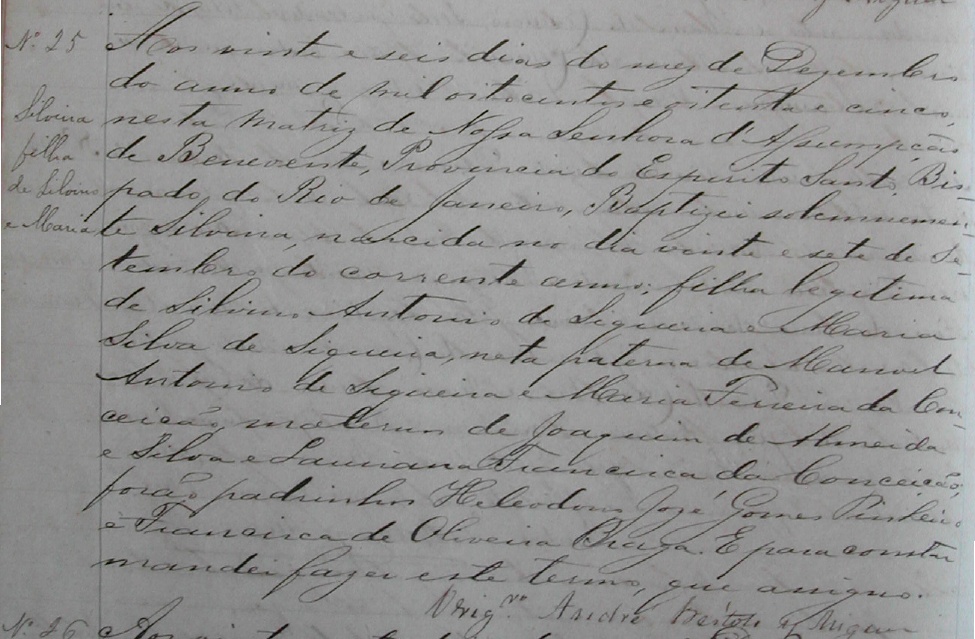 Nº 25
Silvina
filha
de Silvino
e Maria
Aos vinte e seis dias do mez de Dezembro
do anno de mil oitocentos e oitenta e cinco,
nesta Matriz de Nossa Senhora d'Assumpção
de Benevente, Provincia do Espirito Santo, Bis-
pado do Rio de Janeiro, Baptizei solemnemen-
te Silvina, nascida no dia vinte e sete de Se-
tembro do corrente anno; filha legitima
de Silvino Antonio de Siqueira e Maria
Silva de Siqueira, neta paterna de Manoel
Antonio de Siqueira e Maria Ferreira da Con-
ceição, materna de Joaquim de Almeida
e Silva e Lauriana Francisca da Conceição,
forão padrinhos Heleodoro José Gomes Pinheiro
e Francisca de Oliveira Braga. E para constar
mandei fazer este termo, que assigno.
Vrigº André
Nº 26